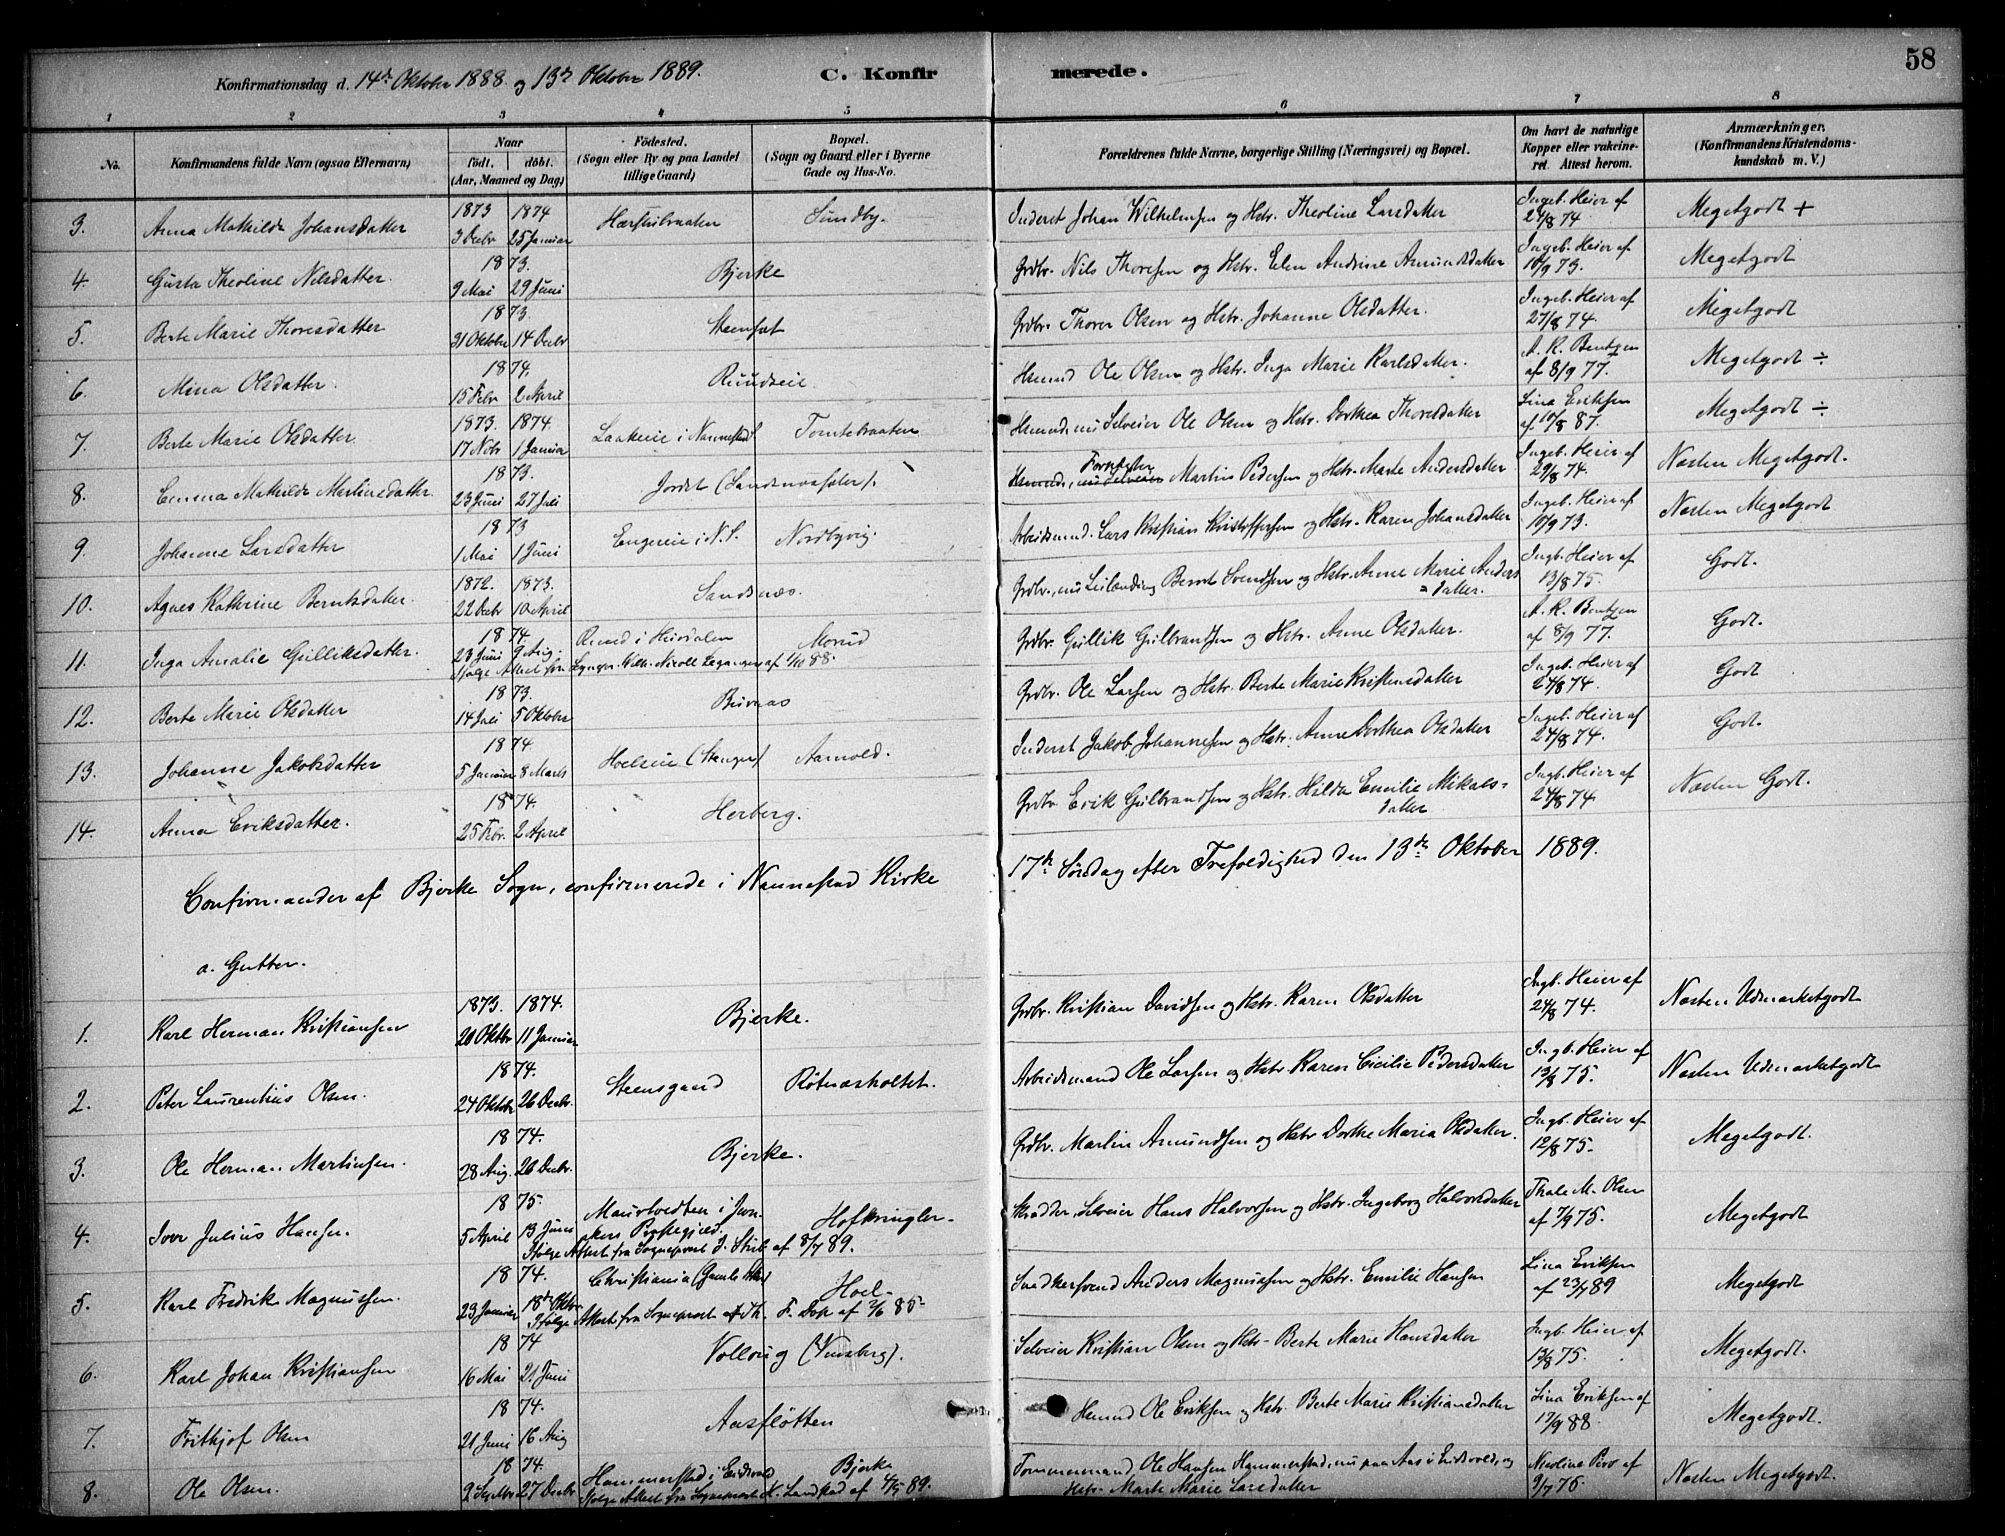 58
Konfirmationsdag d. 14de Oktober 1888 og 13de Oktober 1889.
C. Konfirmerede.
1 2 3 4 5 6 7 8
No.
Konfirmandens fulde Navn (ogsaa Efternavn)
Naar
födt. döbt.
(Aar, Maaned og Dag)
Födested.
(Sogn eller By og paa Landet
tillige Gaard)
Bopæl.
(Sogn og Gaard eller i Byerne
Gade og Hus-No.
Forældrenes fulde Navne, borgerlige Stilling (Næringsvei) og Bopæl.
Om havt de naturlige
Kopper eller vakcine-
ret. Attest herom.
Anmærkninger.
(Konfirmandens Kristendoms-
kundskab m. V.)
3. Anna Mathilde Johansdatter 1873 3 Decbr 1874 25 Januar Sundby. Inderst Johan Wilhelmsen og Hstr. Theoline Larsdatter Ingeb. Heier af 24/8 74. Megetgodt +
4. Gusta Theoline Nilsdatter. 1873. 9 Mai 29 Juni Bjerke Grdbr. Nils Thoresen og Hstr. Elen Andrine Amundsdatter Ingeb. Heier af 10/9 73. Megetgodt
5. Berte Marie Thoresdatter 1873. 31 Oktobr 14 Decbr Steenfæt Grdbr. Thorer Olsen og Hstr. Johanne Olsdatter. Ingeb. Heier af 27/8 74. Megetgodt
6. Mina Olsdatter. 1874. 15 Febr 2 April Ruudseie. Hsmnd Ole Olsen og Hstr. Inga Marie Karlsdatter. A. K. Bentzen af 8/9 77. Megetgodt ÷
7. Berte Marie Olsdatter. 1873. 17 Nobr 1874 1 Januar Laakeie i Nannestad Tomtebraaten Hsmnd, nu Selveier Ole Olsen og Hstr. Dorthea Thoresdatter Lina Eriksen af 10/8 87. Megetgodt ÷
8. Emma Mathilde Martinsdatter. 1873. 23 Juni 27 Juli Jordet (Sandsnæsseter). Martin Pedersen og Hstr. Marte Andersdatter Ingeb. Heier af 29/8 74. Næsten Megetgodt.
9. Johanne Larsdatter 1873 1 Mai 1 Juni Engereie i N.S. Nordbyvig. Arbeidsmnd. Lars Kristian Kristoffersen og Hstr. Karen Johansdatter Ingeb. Heier af 10/9 73. Næsten Megetgodt.
10. Agnes Kathrine Berntsdatter. 1872. 22 Decbr 1873. 10 April Sandsnæs. Grdbr., nu Leilænding Bernt Svendsen og Hstr. Anne Marie Anders=
datter. Ingb. Heier af 13/8 75. Godt.
11. Inga Amalie Gulliksdatter. 1874. 23 Juni 9 Aug. Morud Grdbr. Gullik Gulbrandsen og Hstr. Anne Olsdatter. A. K. Bentzen af 8/9 77. Godt.
12. Berte Marie Olsdatter 1873. 14 Juli 5 Oktober Buraas Grdbr. Ole Larsen og Hstr. Berte Marie Kristensdatter Ingeb. Heier af 24/8 74. Godt
13. Johanne Jakobsdatter 1874. 5 Januar 8 Marts Hoelseie (Stanger) Aamold. Inderst Jakob Johannesen og Hstr. Anne Dorthea Olsdatter Ingeb. Heier af 24/8 74. Godt.
14. Anna Eriksdatter. 1874. 25 Febr. 2 April Herberg. Grdbr Erik Gulbrandsen og Hstr. Hilda Emilie Mikals=
datter Ingb. Heier af 24/8 74 Næsten Godt.
Confirmander af Bjerke Sogn, confirmerede i Nannestad Kirke 17de Söndag efter Trefoldighed den 13de Oktober 1889.
a. Gutter.
1. Karl Herman Kristiansen 1873. 20 Oktbr 1874. 11 Januar Bjerke. Grdbr. Kristian Davidsen og Hstr. Karen Olsdatter Ingb. Heier af 24/8 74. Næsten Udmærketgodt
2. Peter Laurentius Olsen. 1874. 24 Oktobr 26 Decbr. Steensgaard Rötnæsholtet. Arbeidsmand Ole Larsen og Hstr. Karen Cicilie Pedersdatter Ingb. Heier af 13/8 75. Næsten Udmærketgodt
3. Ole Herman Martinsen. 1874. 28 Aug. 26 Decbr. Bjerke. Grdbr. Martin Amundsen og Hstr Dorthe Maria Olsdatter. Ingb. Heier af 12/8 75. Megetgodt.
4. Iver Julius Hansen. 1875. 5 April 13 Juni Maurtvedten i Jevnakers Præstegjeld. Hofkringler. Skrædder, Selveier Hans Halvorsen og Hstr. Ingeborg Halvorsdatter Thale M. Olsen af 7/9 75. Megetgodt
Ifölge Attest fra Sognepræst J. Strib af 8/7 89.
5. Karl Fredrik Magnussen. 1874. 23 Januar 18de Oktbr Christiania (Gamle Aker) Hoel. Snedkersvend Anders Magnussen og Hstr. Emilie Hansen Lina Eriksen af 23/7 89 Megetgodt
Ifölge Attest fra Sognepræst
6. Karl Johan Kristiansen 1874 16 Mai 21 Juni Selveier Kristian Olsen og Hstr. Berte Marie Hansdatter Ingb. Heier af 13/8 75. Megetgodt.
7. Frithjof Olsen 1874. 21 Juni 16 Aug Aasflötten Hsmnd Ole Eriksen og Hstr. Berte Marie Kristiansdatter Lina Eriksen af 17/9 88. Megetgodt.
8. Ole Olsen. 1874. 2 Septbr 27 Decbr Hammerstad i Eidsvold Bjerke Tömmermand Ole Hansen Hammerstad, nu paa Aas i Eidsvold, og
Hstr. Marte Marie Larsdatter af 9/7 76. Næsten Megetgodt.
Ifölge Attest fra Sognepræst N. Landstad